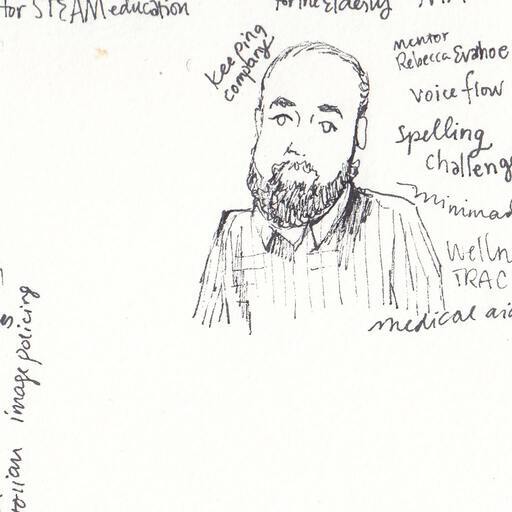 for STEAM education
for the Elderly
keeping
company
mentor
Rebecca Evahoe
voice flow
spelling
challeng
minimad
Welln
TRAC
medical aid
image policing